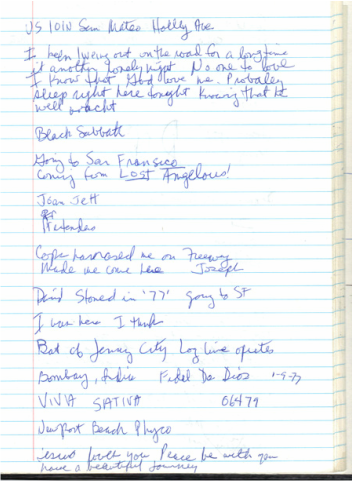 US 101N San Mateo Holly Ave
I been / were out on the road for a long time
It another lonely night No one to love
I know that God love me. Probaley
sleep right here tonight Knowing that he
will
Black Sabbath
Going to San Fransico
Coming from LOST Angelous!
Joan Jett
Pretenders
harrased me on Freeway
Made me come here Joseph
David Stoned in '77' going to SF
I was here I think
Bat of Jersey City Log live
Bombay, India Fidel Da Dios 1-9-77
VIVA SATIVA 06479
Newport Beach Phyco
Jesus loves you Peace be with you
have a beautiful Journey